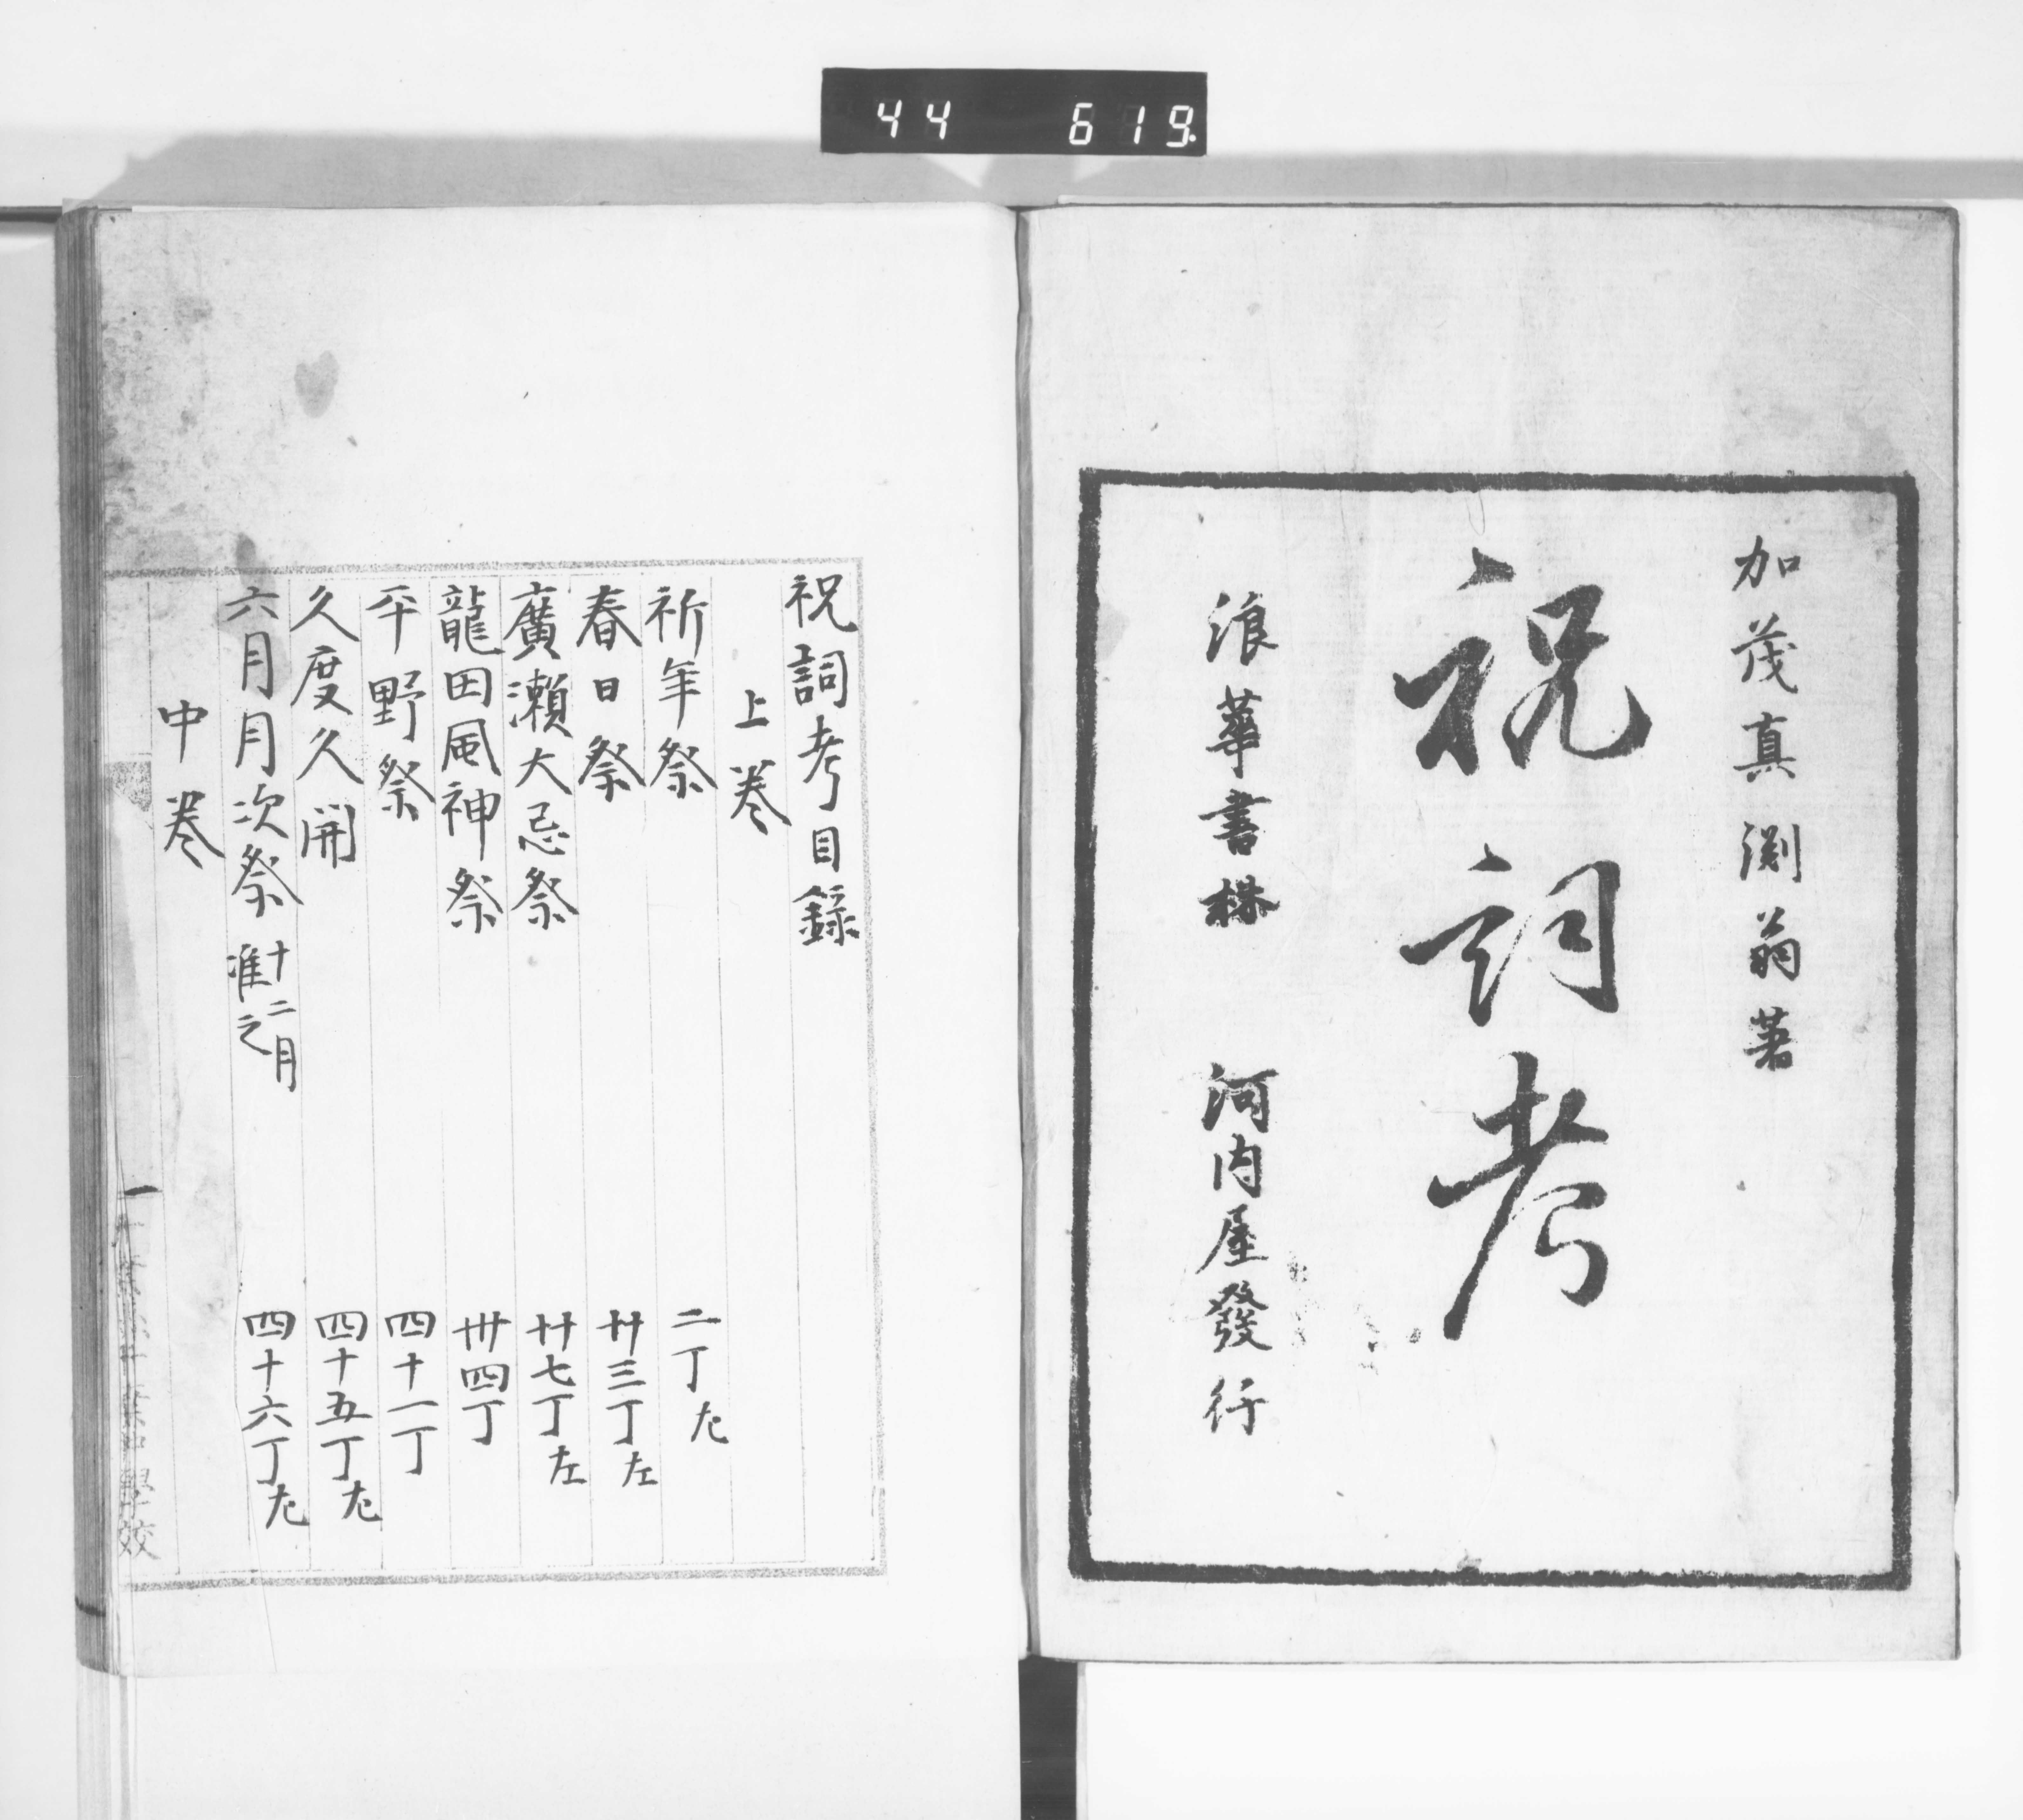 44 619.
加茂真渕翁著
祝詞考
浪華書 河内屋發行
祝詞考目録
上巻
祈年祭 二丁
春日祭 廿三丁左
廣瀬大忌祭 廿七丁左
龍田風神祭 卅四丁
平野祭 四十一丁
久度久開 四十五丁
六月月次祭 十二月准之 四十六丁
中巻
一
學校